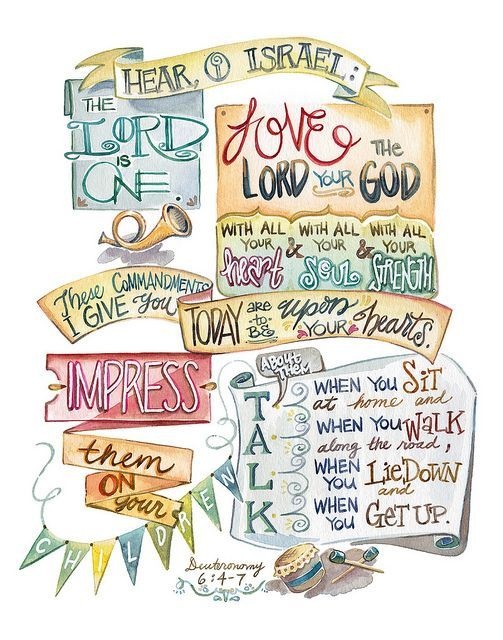 HEAR, O ISRAEL:
THE
LORD
IS
ONE.
LOVE THE
LORD YOUR GOD
WITH ALL YOUR heart
& WITH ALL YOUR SOUL
& WITH ALL YOUR STRENGTH
These COMMANDMENTS
I GIVE YOU
TODAY are to BE upon YOUR hearts.
IMPRESS
them
ON
your
CHILDREN
TALK
ABOUT
THEM
WHEN YOU SIT
at home and
WHEN YOU WALK
along the road,
WHEN YOU LIE DOWN
and
WHEN YOU GET UP.
Deuteronomy
6:4-7